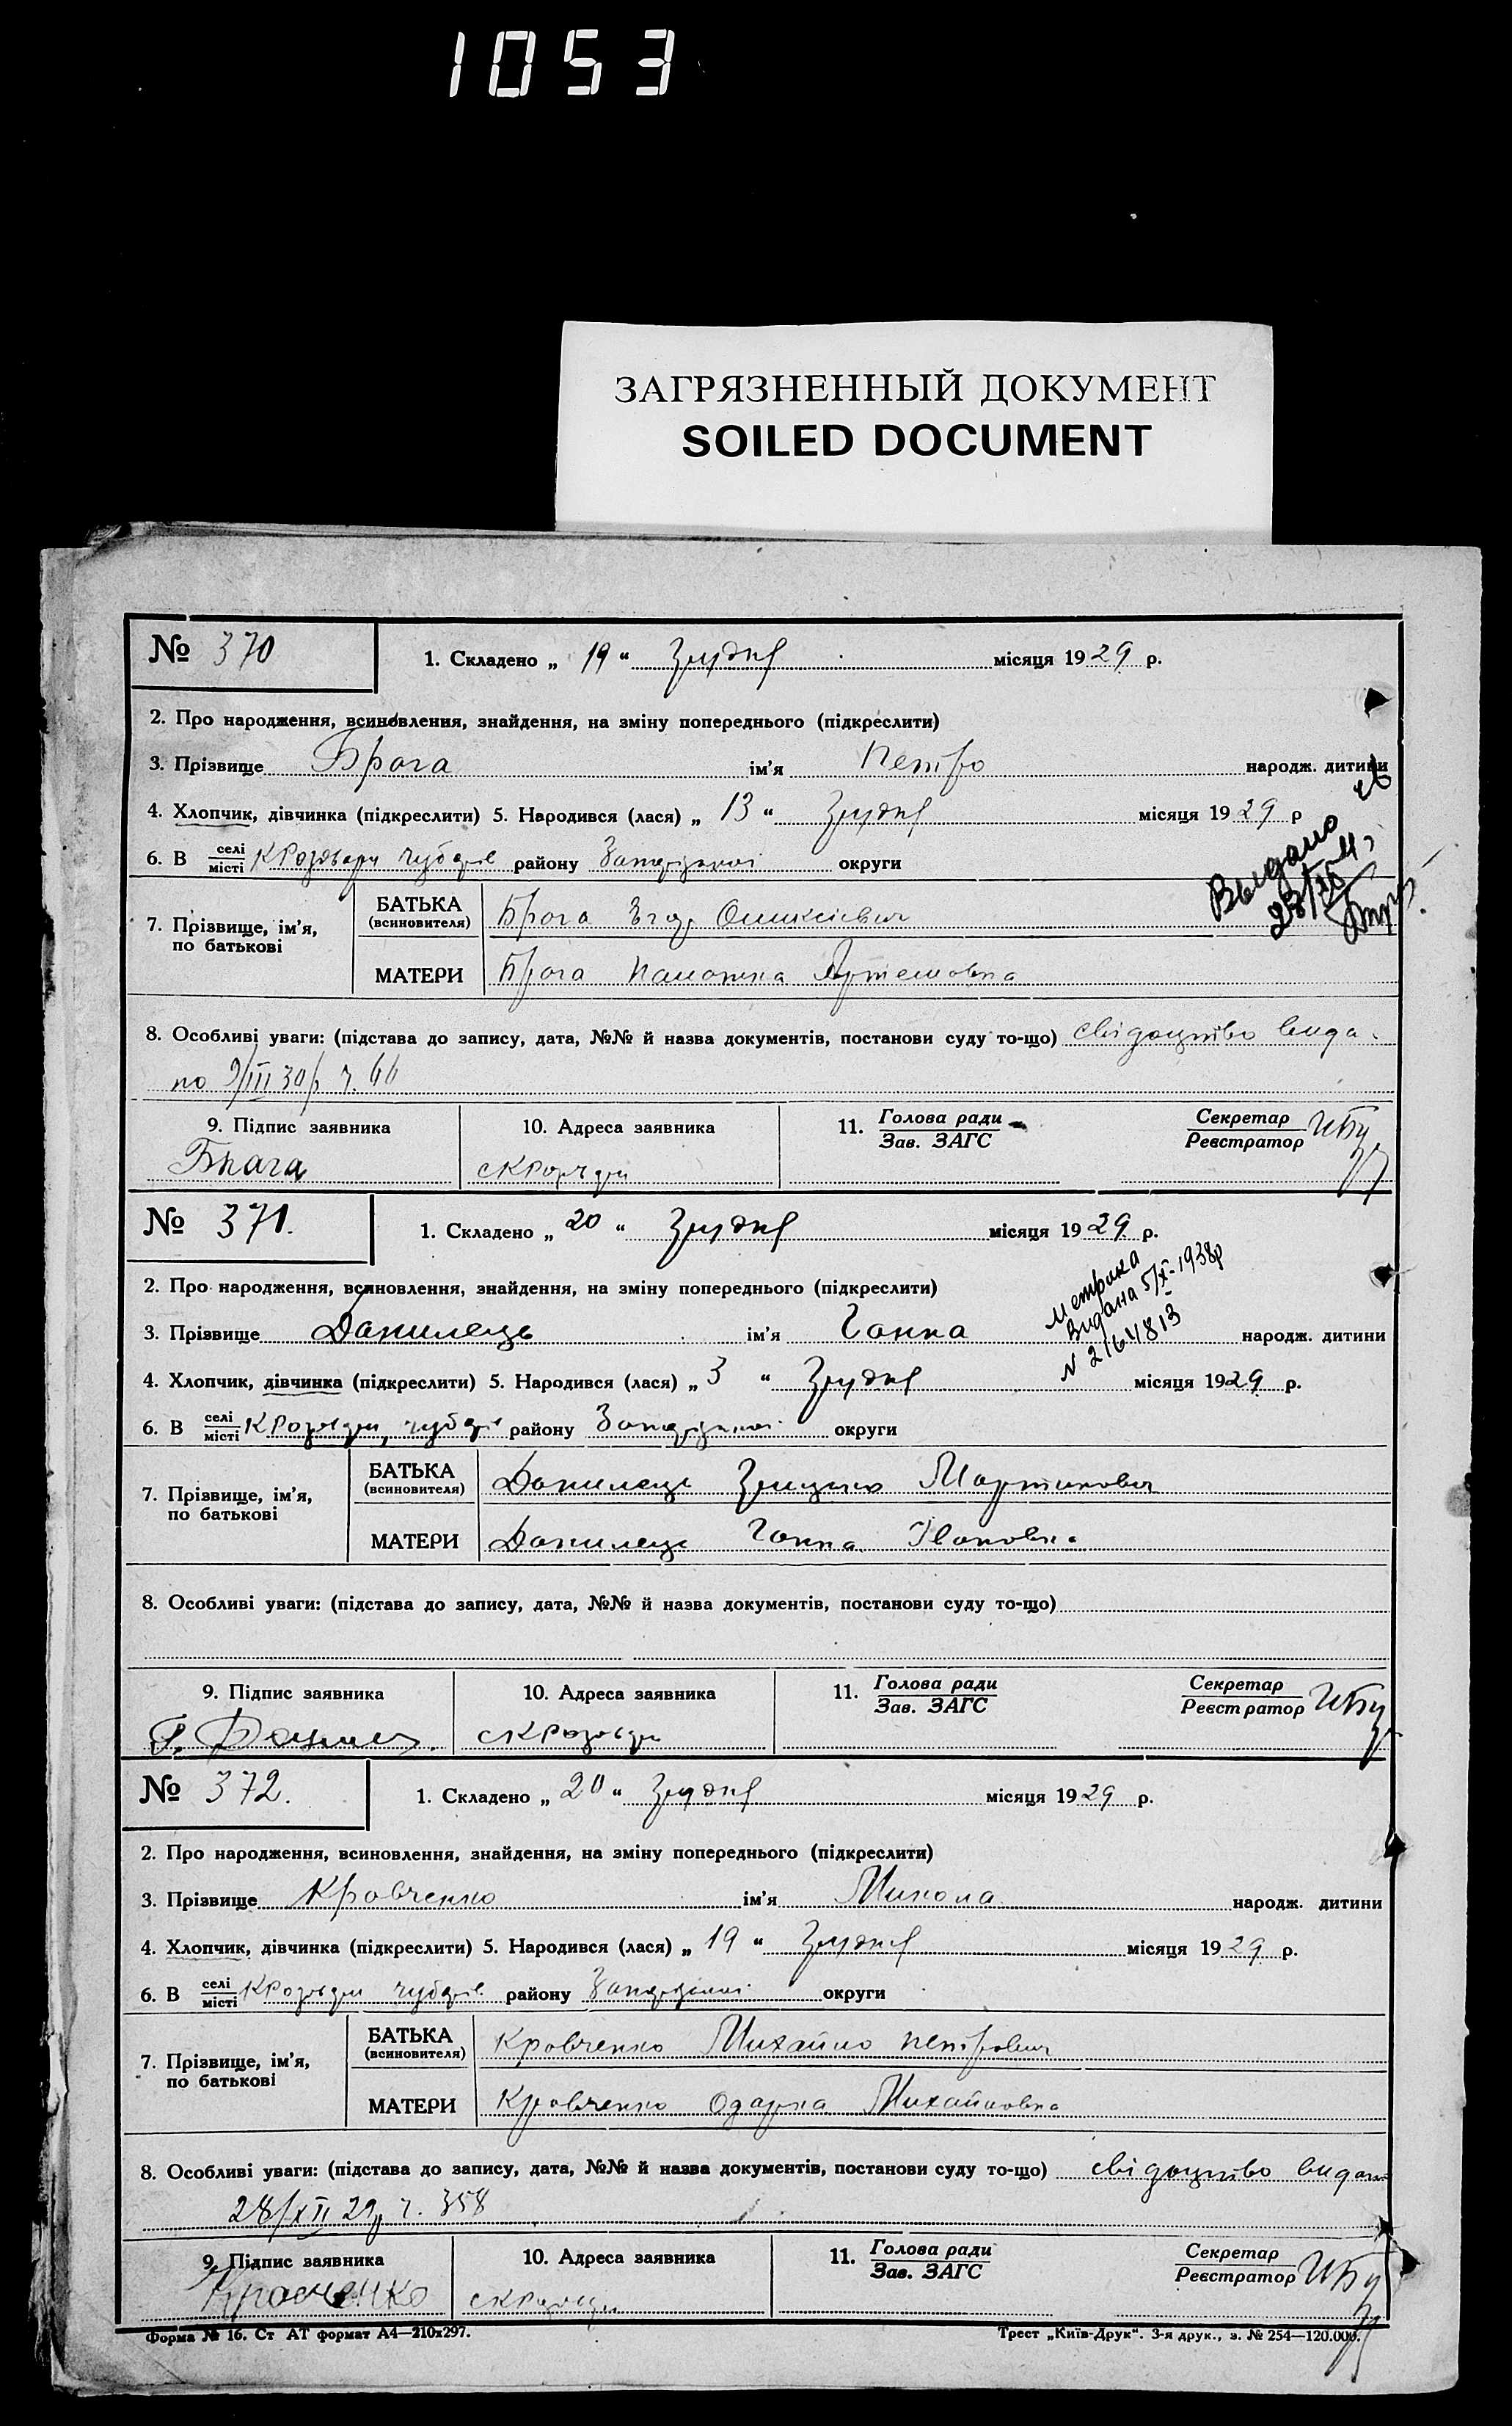 1053
ЗАГРЯЗНЕННЫЙ ДОКУМЕНТ
SOILED DOCUMENT
№ 370 1. Складено „ 19 “ Грудня місяця 1929 р.
2. Про народження, всиновлення, знайдення, на зміну попереднього (підкреслити)
3. Прізвище Брага ім'я Петро народж. дитини
4. Хлопчик, дівчинка (підкреслити) 5. Народився (лася) „ 13 “ Грудня місяця 1929 р
6. В селі/місті району Запорізької округи
Выдано
7. Прізвище, ім'я, по батькові
БАТЬКА (всиновителя) Брага Олексієвич
МАТЕРИ Брага Артемовна
8. Особливі уваги: (підстава до запису, дата, №№ й назва документів, постанови суду то-що) свідоцтво вида-
но 9/III 30 р ч. 66
9. Підпис заявника 10. Адреса заявника 11. Голова ради/Зав. ЗАГС Секретар/Реєстратор
Брага
№ 371. 1. Складено „ 20 “ Грудня місяця 1929 р.
2. Про народження, всиновлення, знайдення, на зміну попереднього (підкреслити)
метрика
Видана 5/X-1938р
N 2164813
3. Прізвище Данилець ім'я Ганна народж. дитини
4. Хлопчик, дівчинка (підкреслити) 5. Народився (лася) „ 3 “ Грудня місяця 1929 р.
6. В селі/місті району Запорізької округи
7. Прізвище, ім'я, по батькові
БАТЬКА (всиновителя) Данилець Грицько Мартинович
МАТЕРИ Данилець Ганна Івановна
8. Особливі уваги: (підстава до запису, дата, №№ й назва документів, постанови суду то-що)
9. Підпис заявника 10. Адреса заявника 11. Голова ради/Зав. ЗАГС Секретар/Реєстратор
№ 372. 1. Складено „ 20 “ Грудня місяця 1929 р.
2. Про народження, всиновлення, знайдення, на зміну попереднього (підкреслити)
3. Прізвище Кравченко ім'я Микола народж. дитини
4. Хлопчик, дівчинка (підкреслити) 5. Народився (лася) „ 19 “ Грудня місяця 1929 р.
6. В селі/місті району Запорізької округи
7. Прізвище, ім'я, по батькові
БАТЬКА (всиновителя) Кравченко Михайло Петрович
МАТЕРИ Кравченко Одарка Михайловна
8. Особливі уваги: (підстава до запису, дата, №№ й назва документів, постанови суду то-що) свідоцтво видано
28/XII 29 р ч. 358
9. Підпис заявника 10. Адреса заявника 11. Голова ради/Зав. ЗАГС Секретар/Реєстратор
Кравченко
Форма № 16. Ст АТ формат А4—210х297. Трест „Київ-Друк“. 3-я друк., з. № 254—120.000.